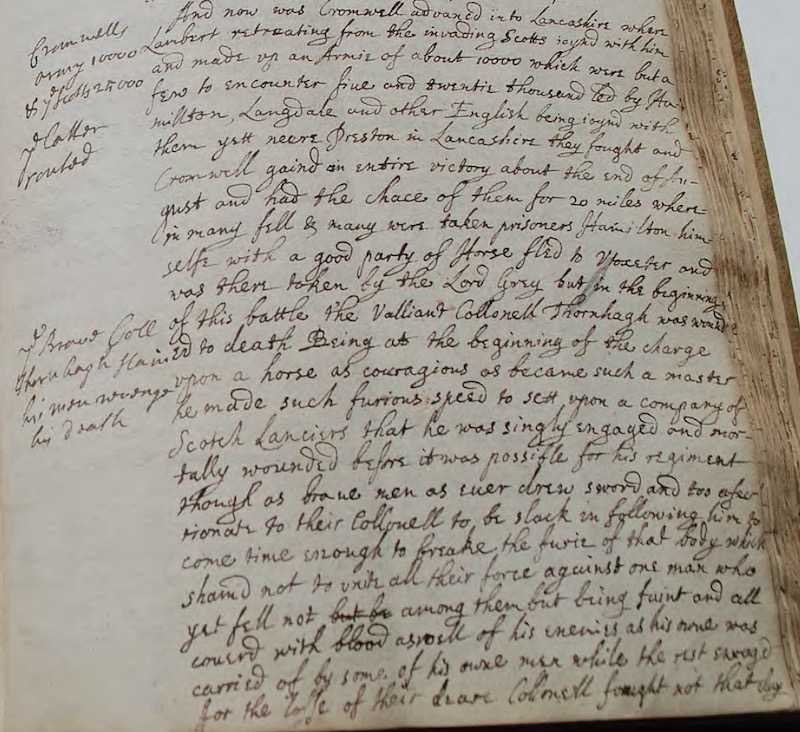 Cromwells
army 10000
& ye Scotts 25000
ye latter
routed
And now was Cromwell advanced into Lancashire where
Lambert retreating from the invading Scotts ioynd with him
and made up an Armie of about 10000 which were but a
few to encounter fiue and twentie thousand led by Ha-
millton, Langdale and other English being ioynd with
them yett neere Preston in Lancashire they fought and
Cromwell gaind an entire victory about the end of Au-
gust and had the chace of them for 20 miles where-
in many fell & many were taken prisoners Hamilton him-
selfe with a good party of Horse fled to Vtoxeter and
was there taken by the Lord Grey but in the beginning
of this battle the Valliant Collonell Thornhagh was wound
ed to death Being at the beginning of the charge
upon a horse as couragious as became such a master
he made such furious speed to sett upon a company of
Scotch Lanciers that he was singly engaged and mor-
tally wounded before it was possible for his regiment
though as braue men as euer drew sword and too afec
tionate to their Collonell to be slack in following him to
come time enough to breake the furie of that body which
shamd not to vnite all their force against one man who
yet fell not but be among them but being faint and all
couerd with blood aswell of his enemies as his owne was
carried of by some of his owne men while the rest enragd
for the losse of their deare Collonell fought not that day
ye Braue Coll
Thornhagh slain
his men revenge
his death